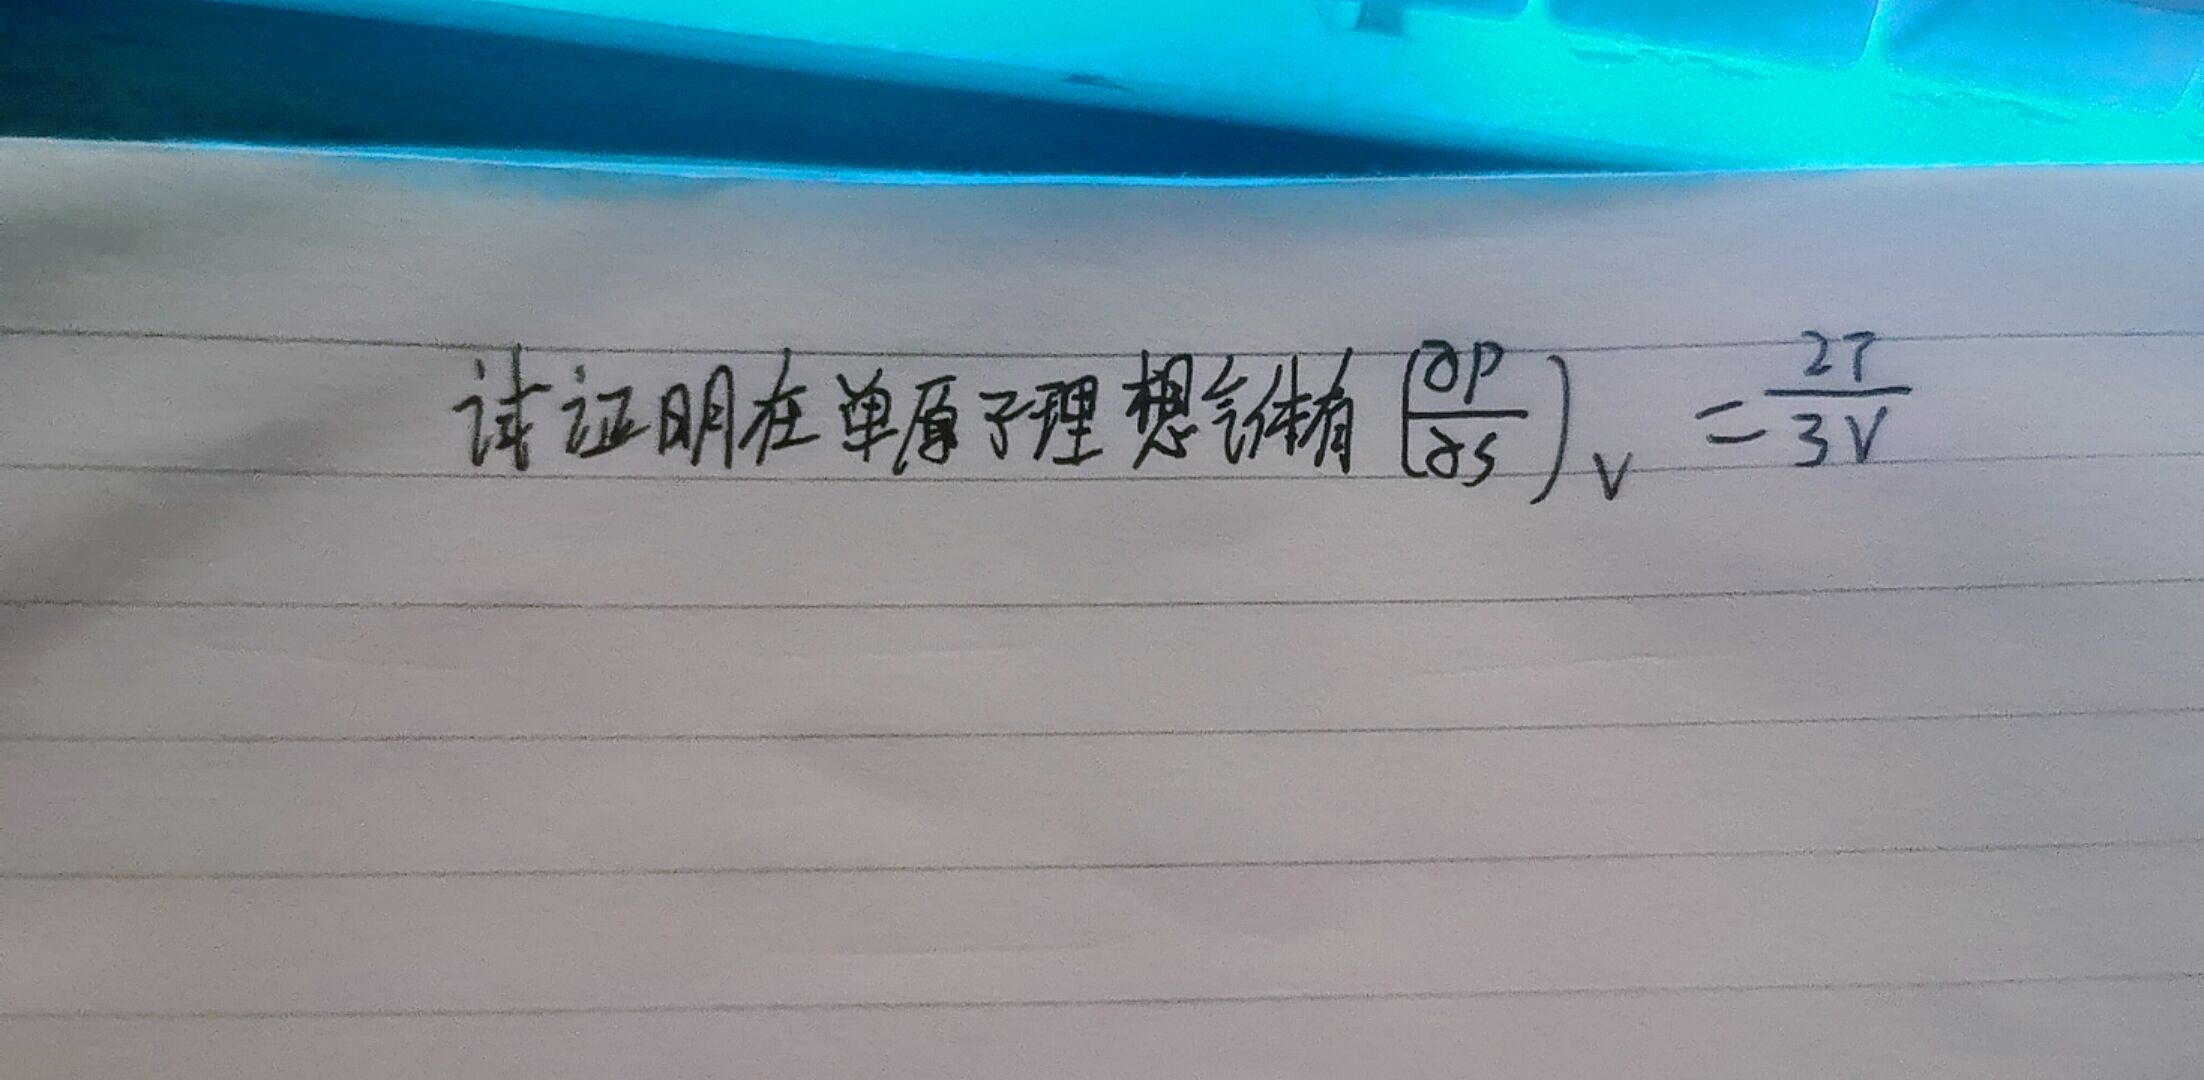 试证明在单原子理想气体有 (∂P/∂S)_V = 2T/3V